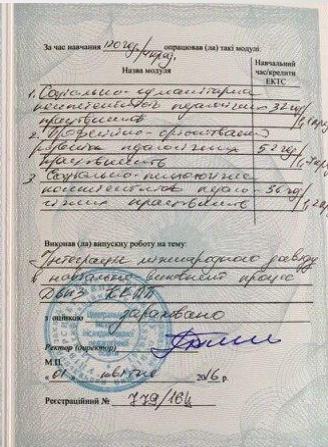 За час навчання 120 год/4кред. опрацював (ла) такі модулі:
Назва модуля
Навчальний
час/кредити
ЄКТС
1. Соціально-гуманітарна
компетентність педагогічних 32 год/
працівників
2. Професійно-орієнтований
розвиток педагогічних 52 год/
працівників
3. Соціально-психологічна
компетентність педаго- 36 год/
гічних працівників
Виконав (ла) випускну роботу на тему:
Інтеграція міжнародного досвіду
в навчально виховний процес
ДВНЗ
з оцінкою зараховано
Ректор (директор)
М.П.
«01 квітня 2016 р.
Реєстраційний № 779/16ч